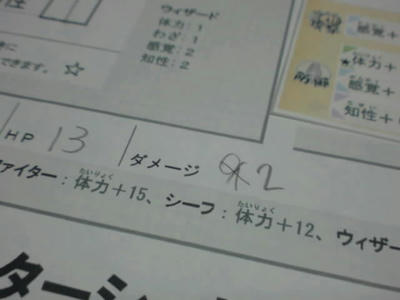 ウィザード
体力：1
わざ：1
感覚：2
知性：2
できます。 ☆
防御
体力＋
★感覚＋
知性＋
HP 13 ダメージ 2
ファイター：体力＋15、シーフ：体力＋12、ウィザー
たいりょく たいりょく
ターシ